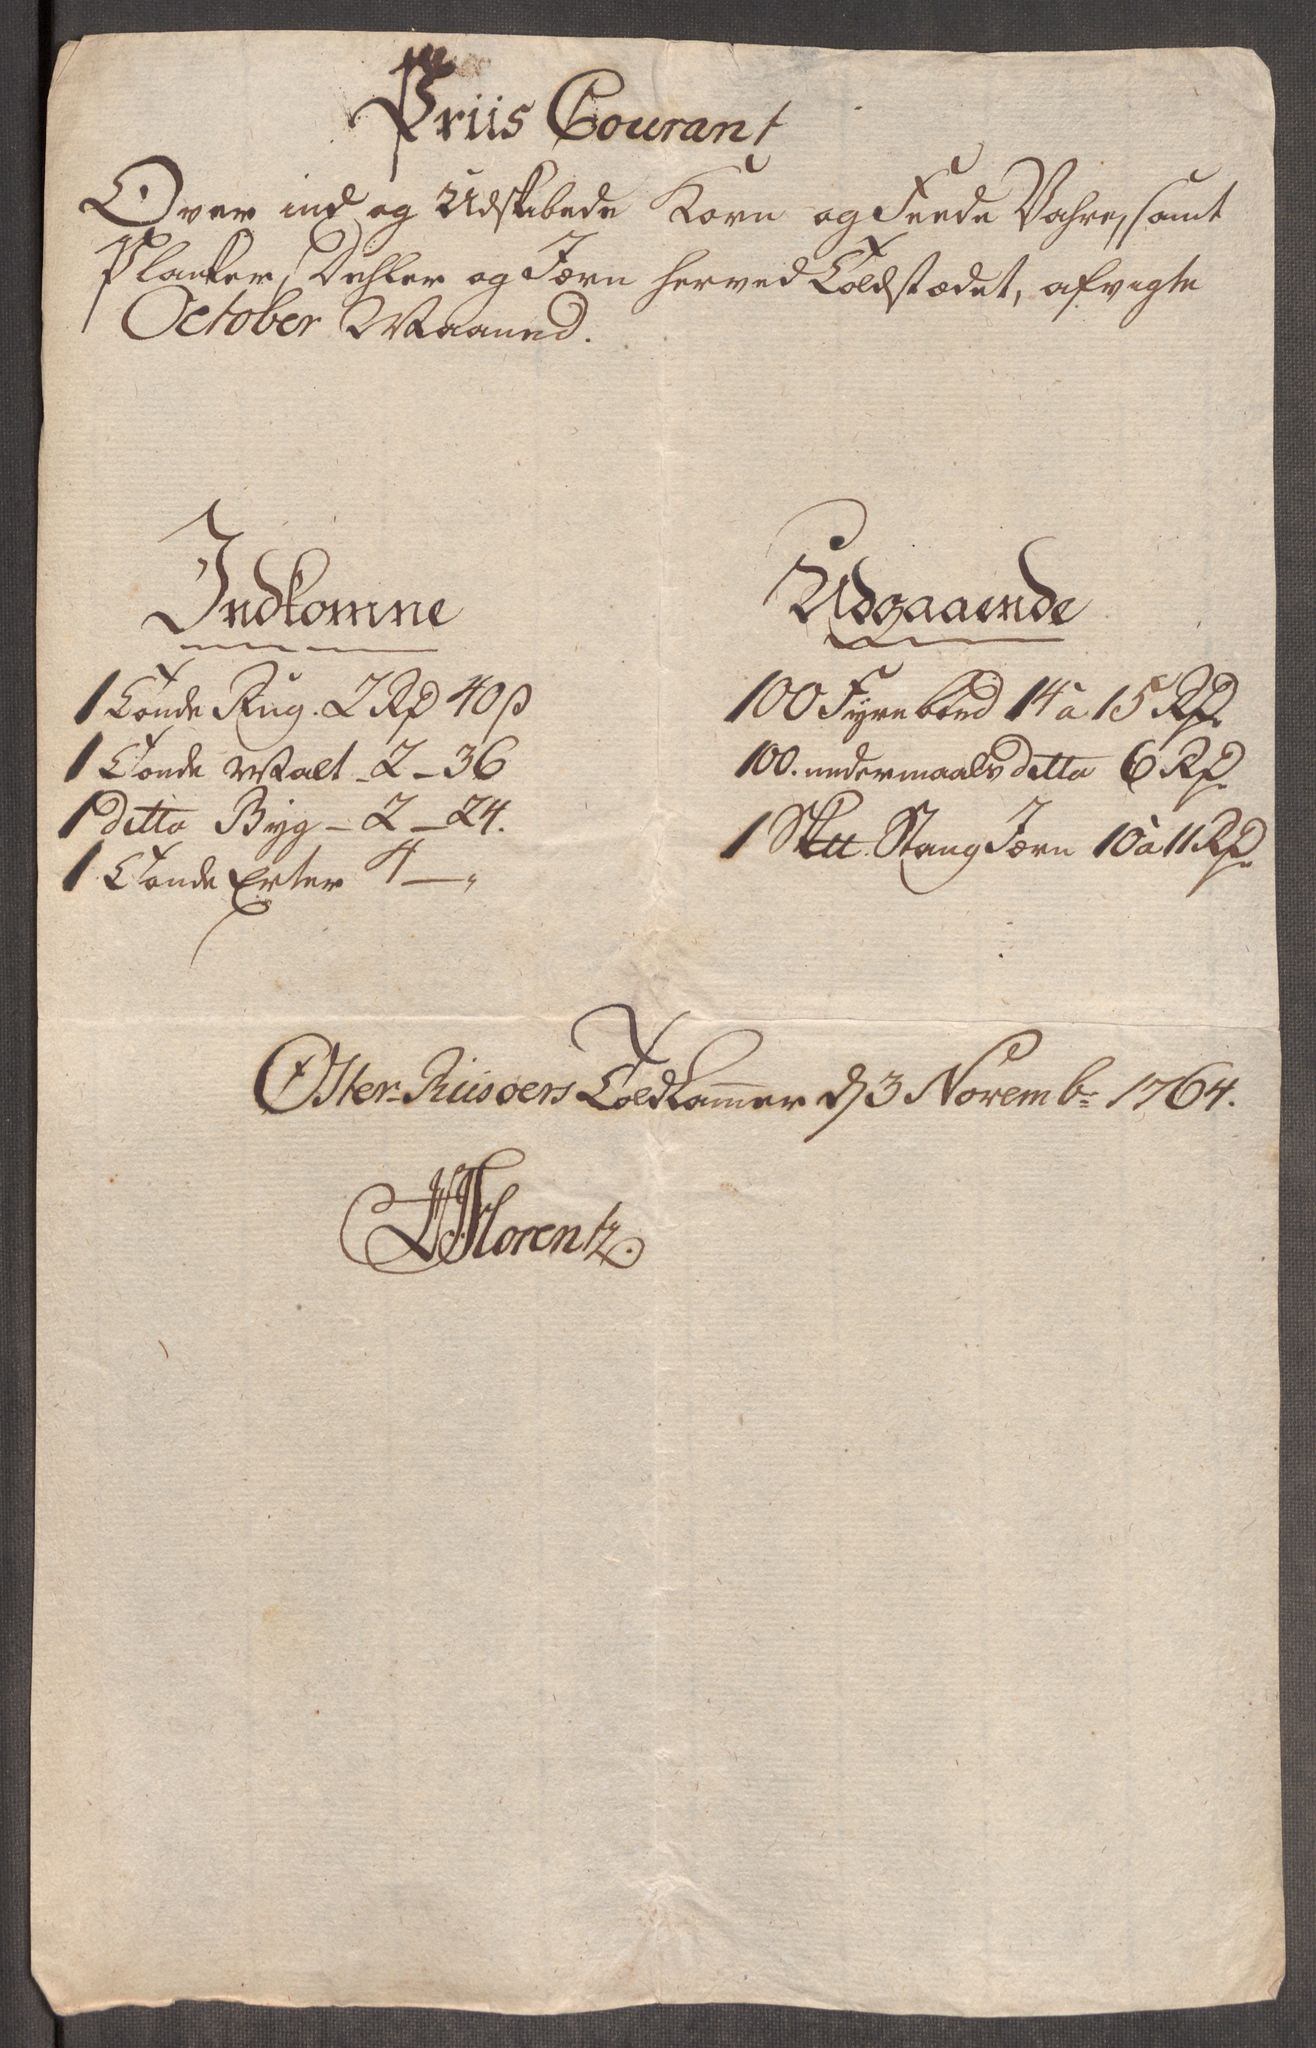 Priis Courant
Over ind og Udskibede Korn og Feede Vahre, samt
Planker, Dehler og Jærn herved Toldstædet, afvigte
October Maaned.
Indkomne
1 Tonde Rug. 2 Rd 40 ß
1 Tonde Malt - 2 - 36
1 ditto Byg - 2 - 24.
1 Tonde Erter 4 - "
Udgaaende
100 Fyrebord 14 a 15 Rd.
100. undermaals ditto 6 Rd.
1 Sk℔ Stang Jærn 10 a 11 Rd.
Öster-Riisöers Toldkammer d 3 Novembr 1764.
Florentz.